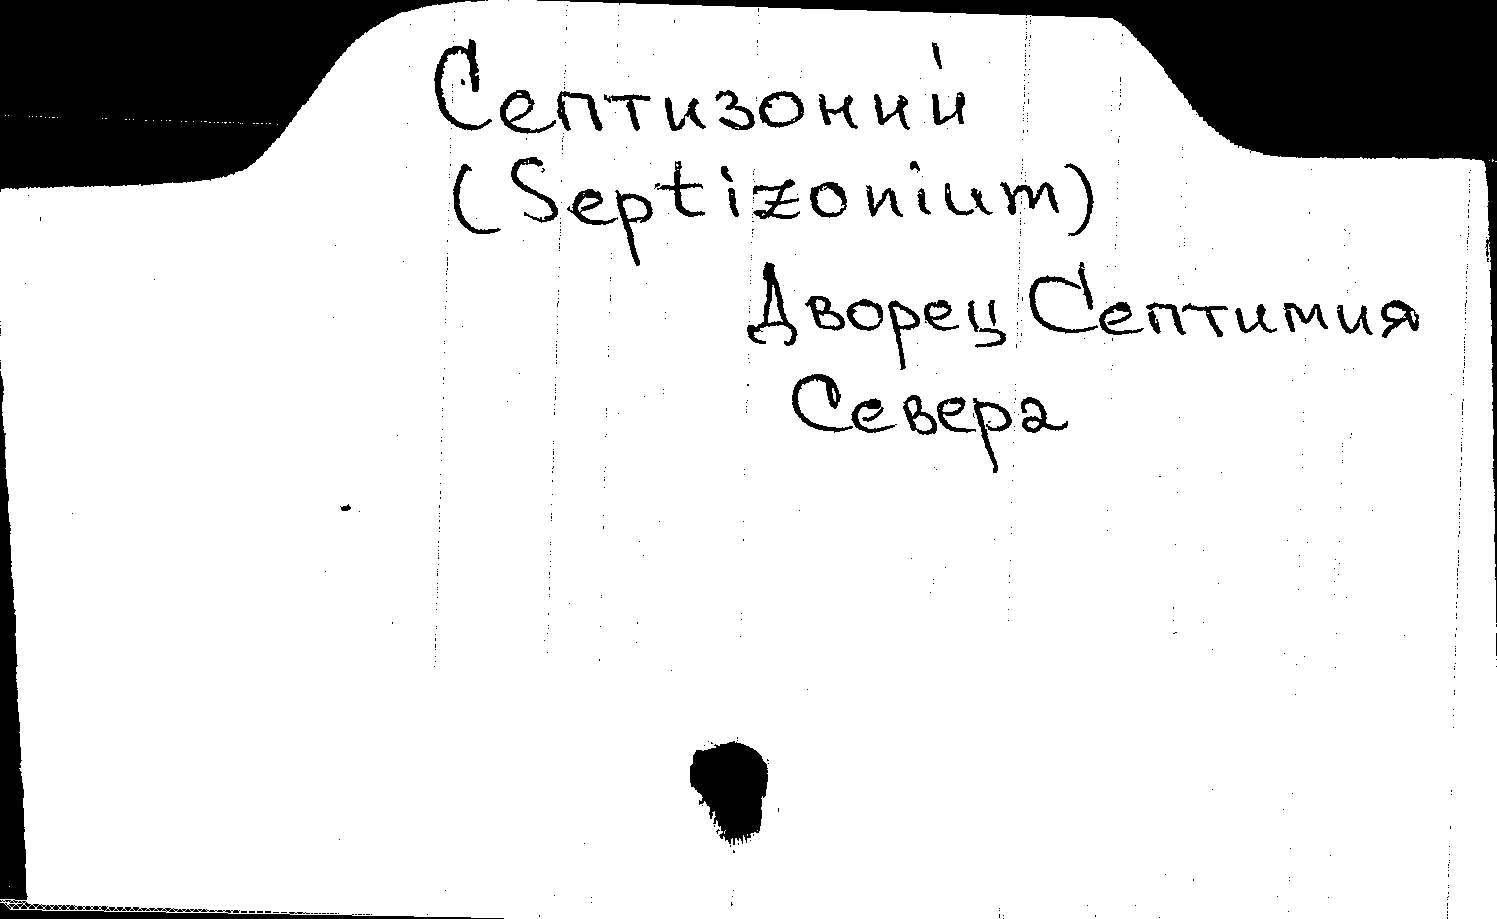 Септизоний
(Septizonium)
Дворец Септимия
Севера